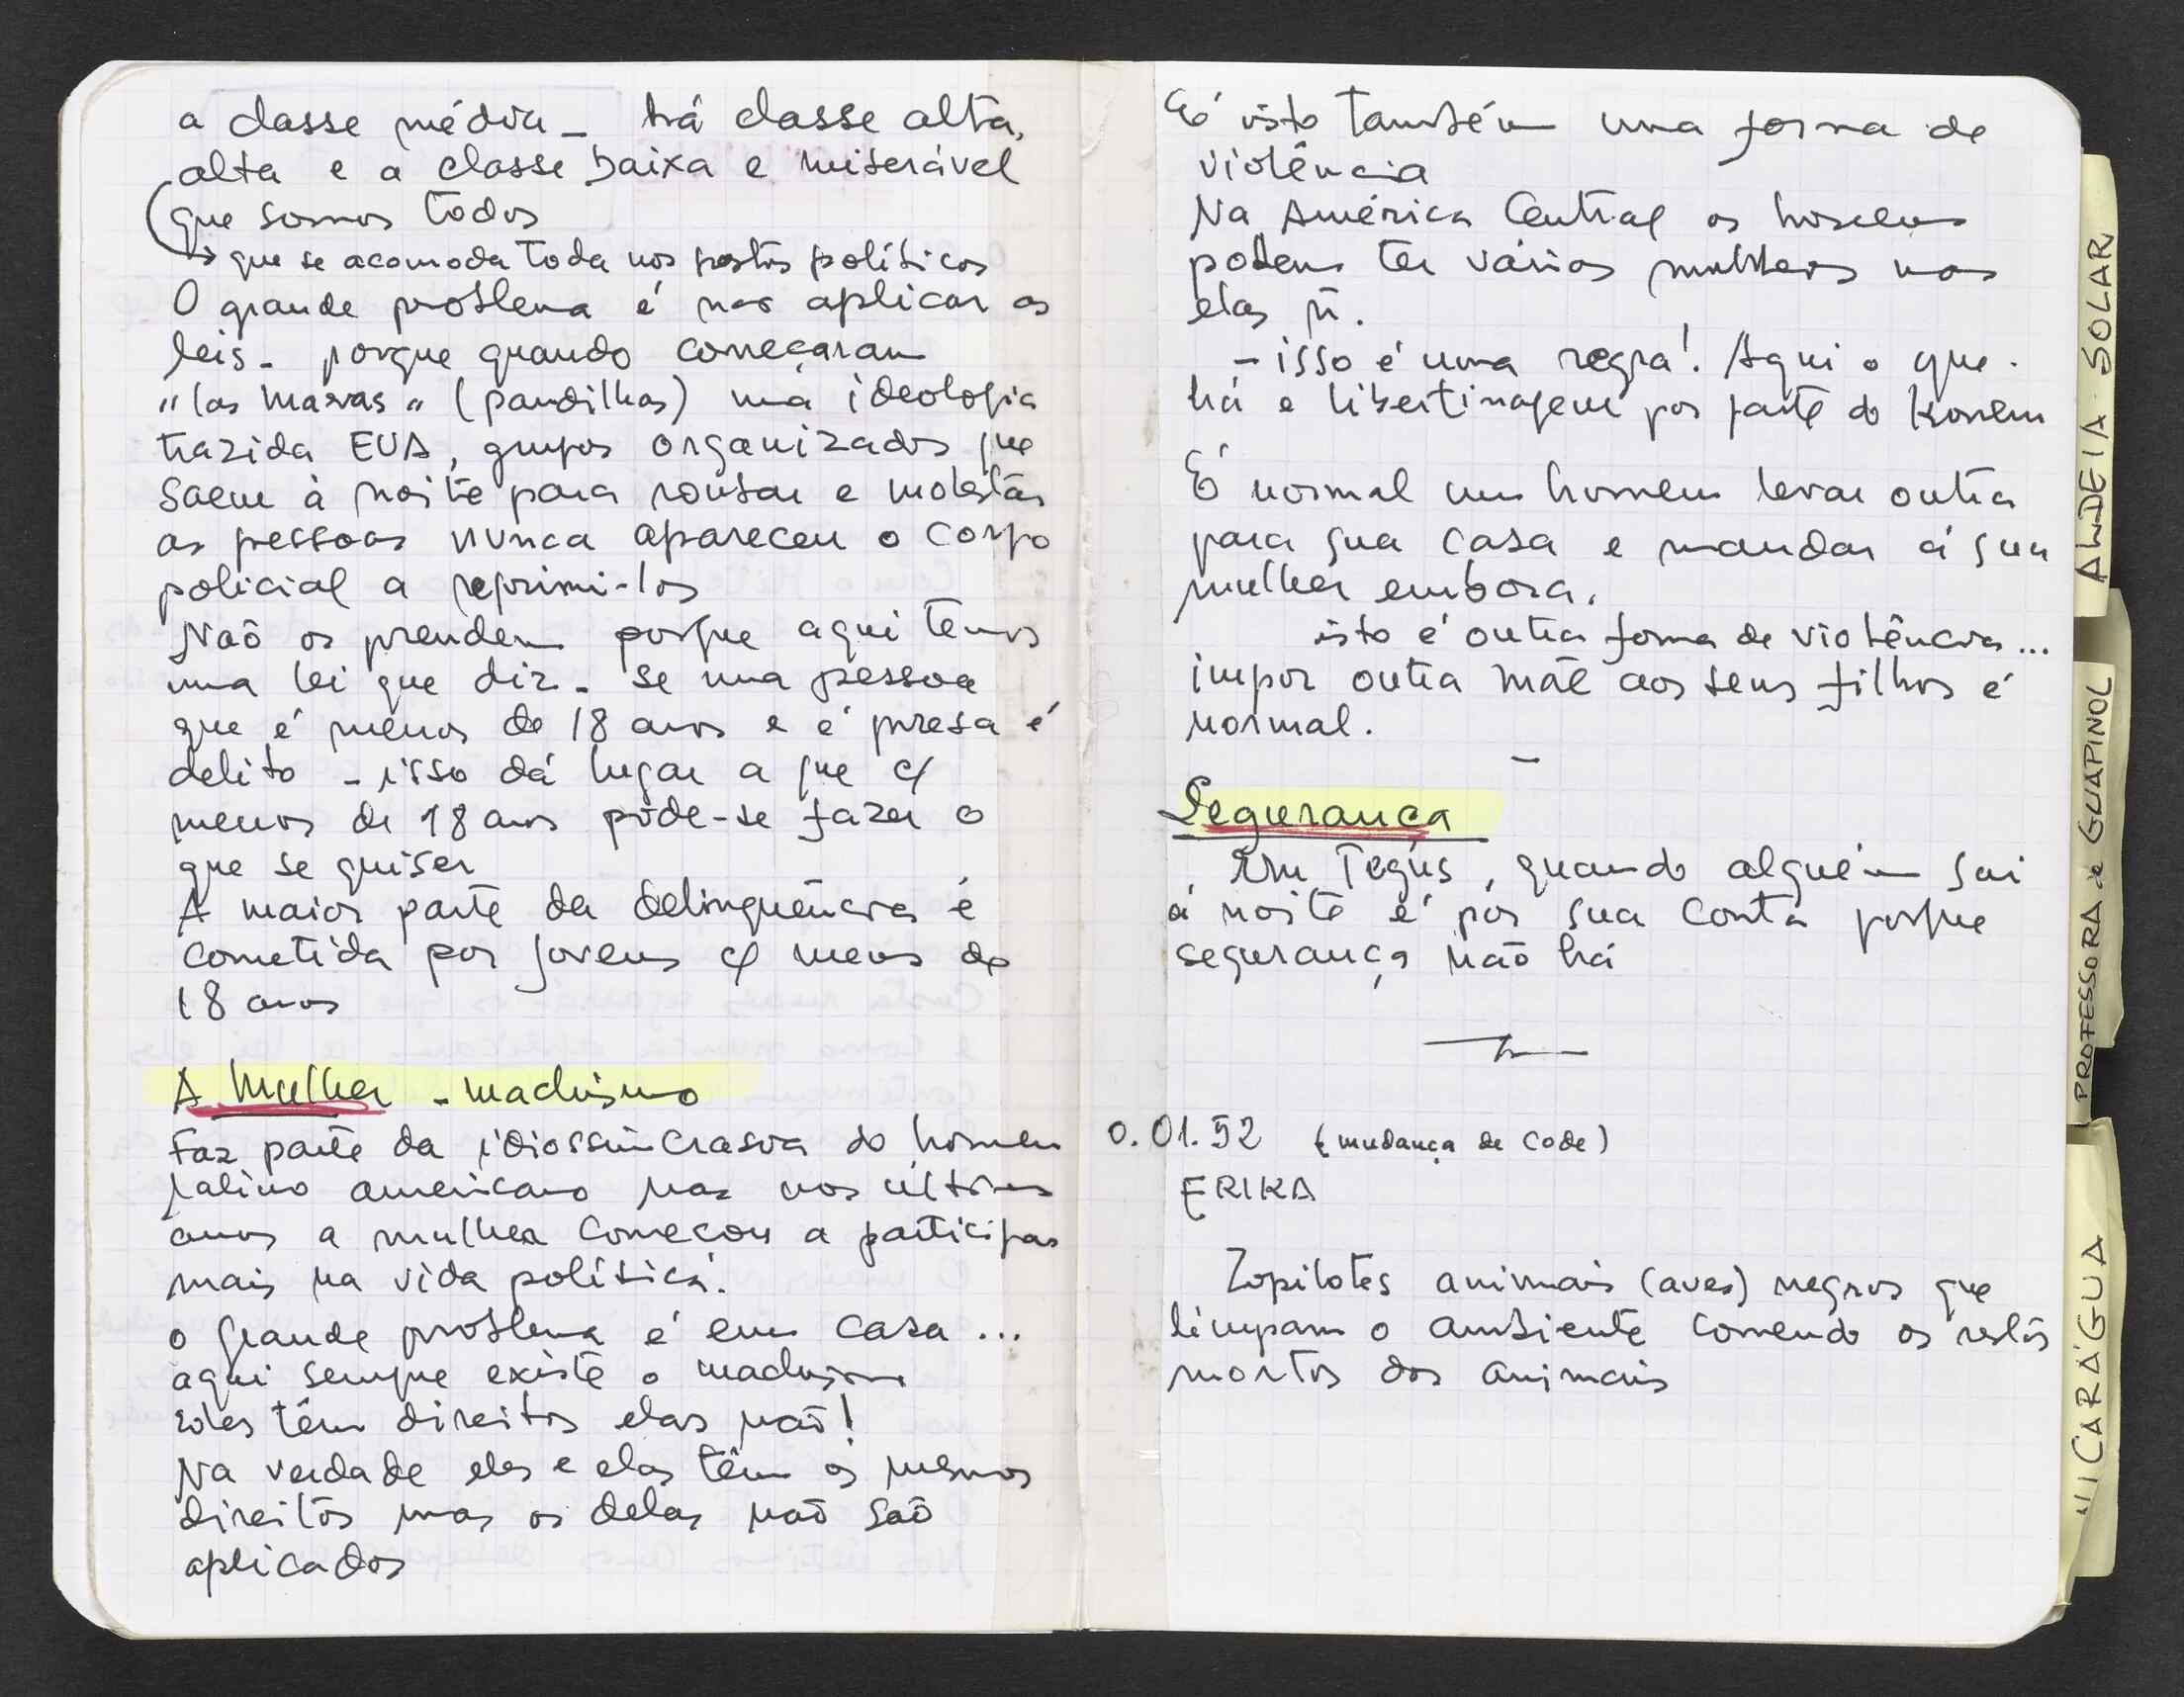 a classe média - há classe alta,
alta e a classe baixa e miserável
que somos todos
→ que se acomoda toda nos postos políticos
O grande problema é nao aplicar as
leis - porque quando começaram
"las maras" (pandilhas) uma ideologia
trazida EUA, grupos organizados que
saem à noite para roubar e molestar
as pessoas nunca apareceu o corpo
policial a reprimi-los
Não os prendem porque aqui temos
uma lei que diz - se uma pessoa
que é menos de 18 anos e é presa é
delito - isso dá lugar a que c/
menos de 18 anos pode-se fazer o
que se quiser
A maior parte da delinquência é
cometida por jovens c/ menos de
18 anos
A Mulher - machismo
Faz parte da idiossincrasia do homem
latino americano mas nos últimos
anos a mulher começou a participar
mais na vida política.
o grande problema é em casa ...
aqui sempre existe o machismo
Eles têm direitos elas não!
Na verdade eles e elas têm os mesmos
direitos mas os delas não são
aplicados
É isto também uma forma de
violência
Na América Central os homens
podem ter várias mulheres mas
elas ñ.
- isso é uma regra! Aqui o que
há e libertinagem por parte do homem
É normal um homem levar outra
para sua casa e mandar a sua
mulher embora.
isto é outra forma de violência...
impor outra mãe aos seus filhos é
normal.
-
Segurança
Em Tegus, quando alguém sai
à noite é por sua conta porque
segurança não há
0.01.52 (mudança de code)
ERIKA
Zopilotes animais (aves) negros que
limpam o ambiente comendo os restos
mortos dos animais
ALDEIA SOLAR
PROFESSORA de GUAPINOL
NICARÁGUA